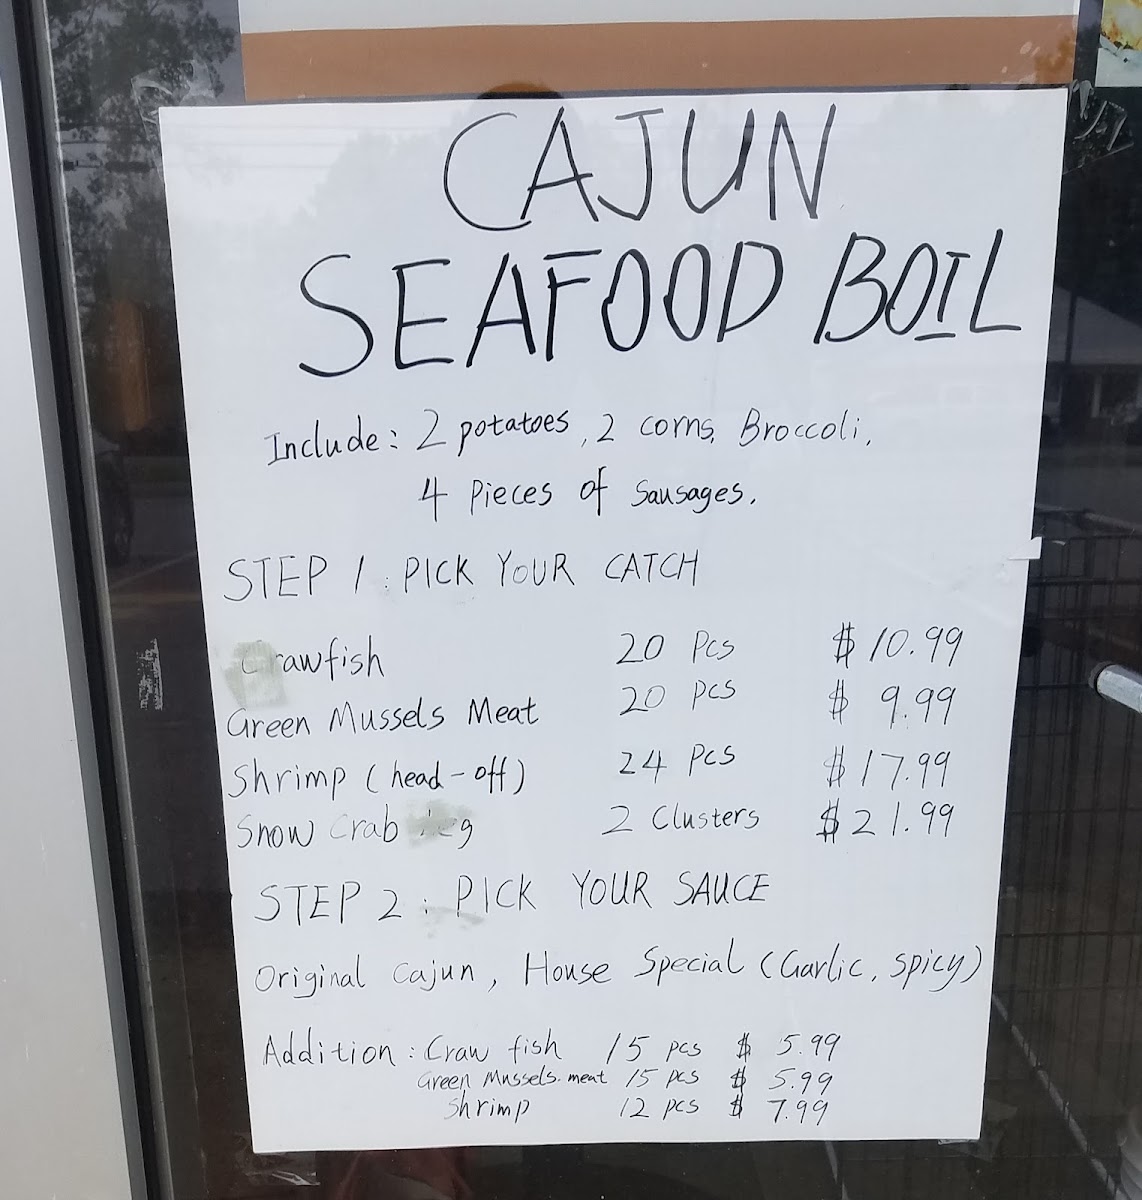 CAJUN
SEAFOOD BOIL
Include: 2 potatoes, 2 corns, Broccoli,
4 pieces of sausages.
STEP 1: PICK YOUR CATCH
Crawfish 20 Pcs $10.99
Green Mussels Meat 20 pcs $ 9.99
Shrimp (head-off) 24 pcs $17.99
Snow Crab leg 2 Clusters $21.99
STEP 2: PICK YOUR SAUCE
Original Cajun, House Special (Garlic, spicy)
Addition: Craw fish 15 pcs $ 5.99
Green Mussels. meat 15 pcs $ 5.99
Shrimp 12 pcs $ 7.99